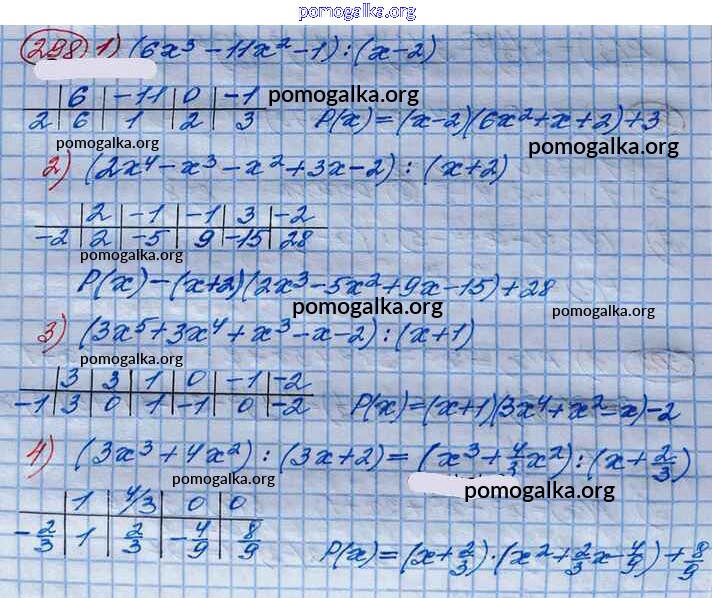 pomogalka.org
298 1) (6x³ - 11x² - 1) : (x - 2)
| 6 | -11 | 0 | -1 pomogalka.org
2 | 6 | 1 | 2 | 3 P(x) = (x - 2)(6x² + x + 2) + 3
pomogalka.org pomogalka.org
2) (2x⁴ - x³ - x² + 3x - 2) : (x + 2)
| 2 | -1 | -1 | 3 | -2
-2 | 2 | -5 | 9 | -15 | 28
pomogalka.org
P(x) - (x+2)(2x³ - 5x² + 9x - 15) + 28
pomogalka.org pomogalka.org
3) (3x⁵ + 3x⁴ + x³ - x - 2) : (x + 1)
pomogalka.org
| 3 | 3 | 1 | 0 | -1 | -2
-1 | 3 | 0 | 1 | -1 | 0 | -2 P(x) = (x+1)(3x⁴ + x² = x) - 2
4) (3x³ + 4x²) : (3x + 2) = (x³ + 4/3 x²) : (x + 2/3)
pomogalka.org pomogalka.org
| 1 | 4/3 | 0 | 0
-2/3 | 1 | 2/3 | -4/9 | 8/9
P(x) = (x + 2/3) · (x² + 2/3 x - 4/9) + 8/9